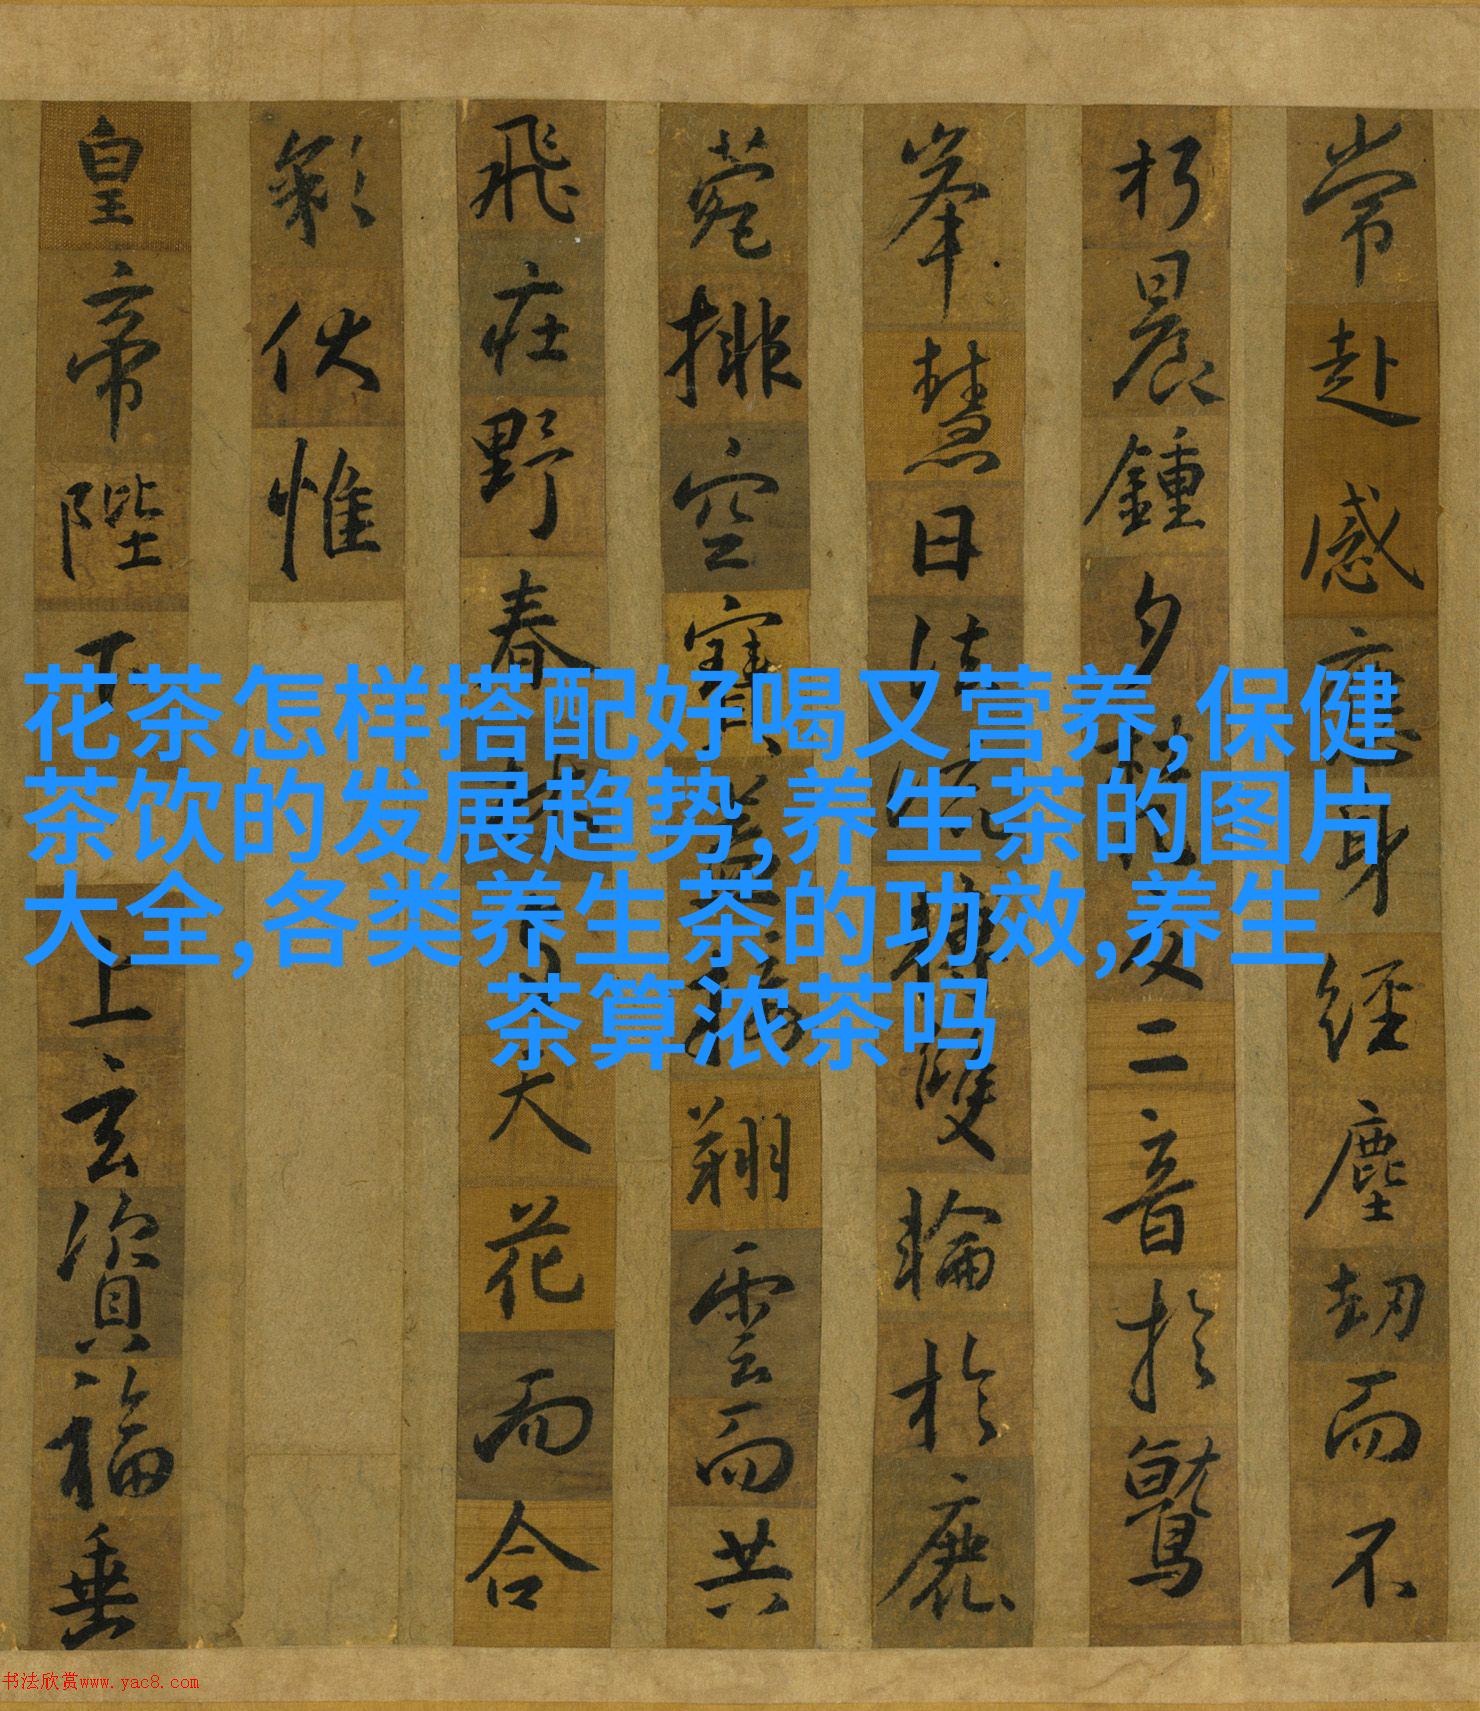 常赴感應身經塵劫而不
朽晨鍾夕梵交二音於鷲
峯慧日法流轉雙輪於鹿
菀排空寶蓋接翔雲而共
飛庄野春林与天花而合
彩伏惟
皇帝陛下上玄資福垂
花茶怎样搭配好喝又营养,保健
茶饮的发展趋势,养生茶的图片
大全,各类养生茶的功效,养生
茶算浓茶吗
书法欣赏www.yac8.com